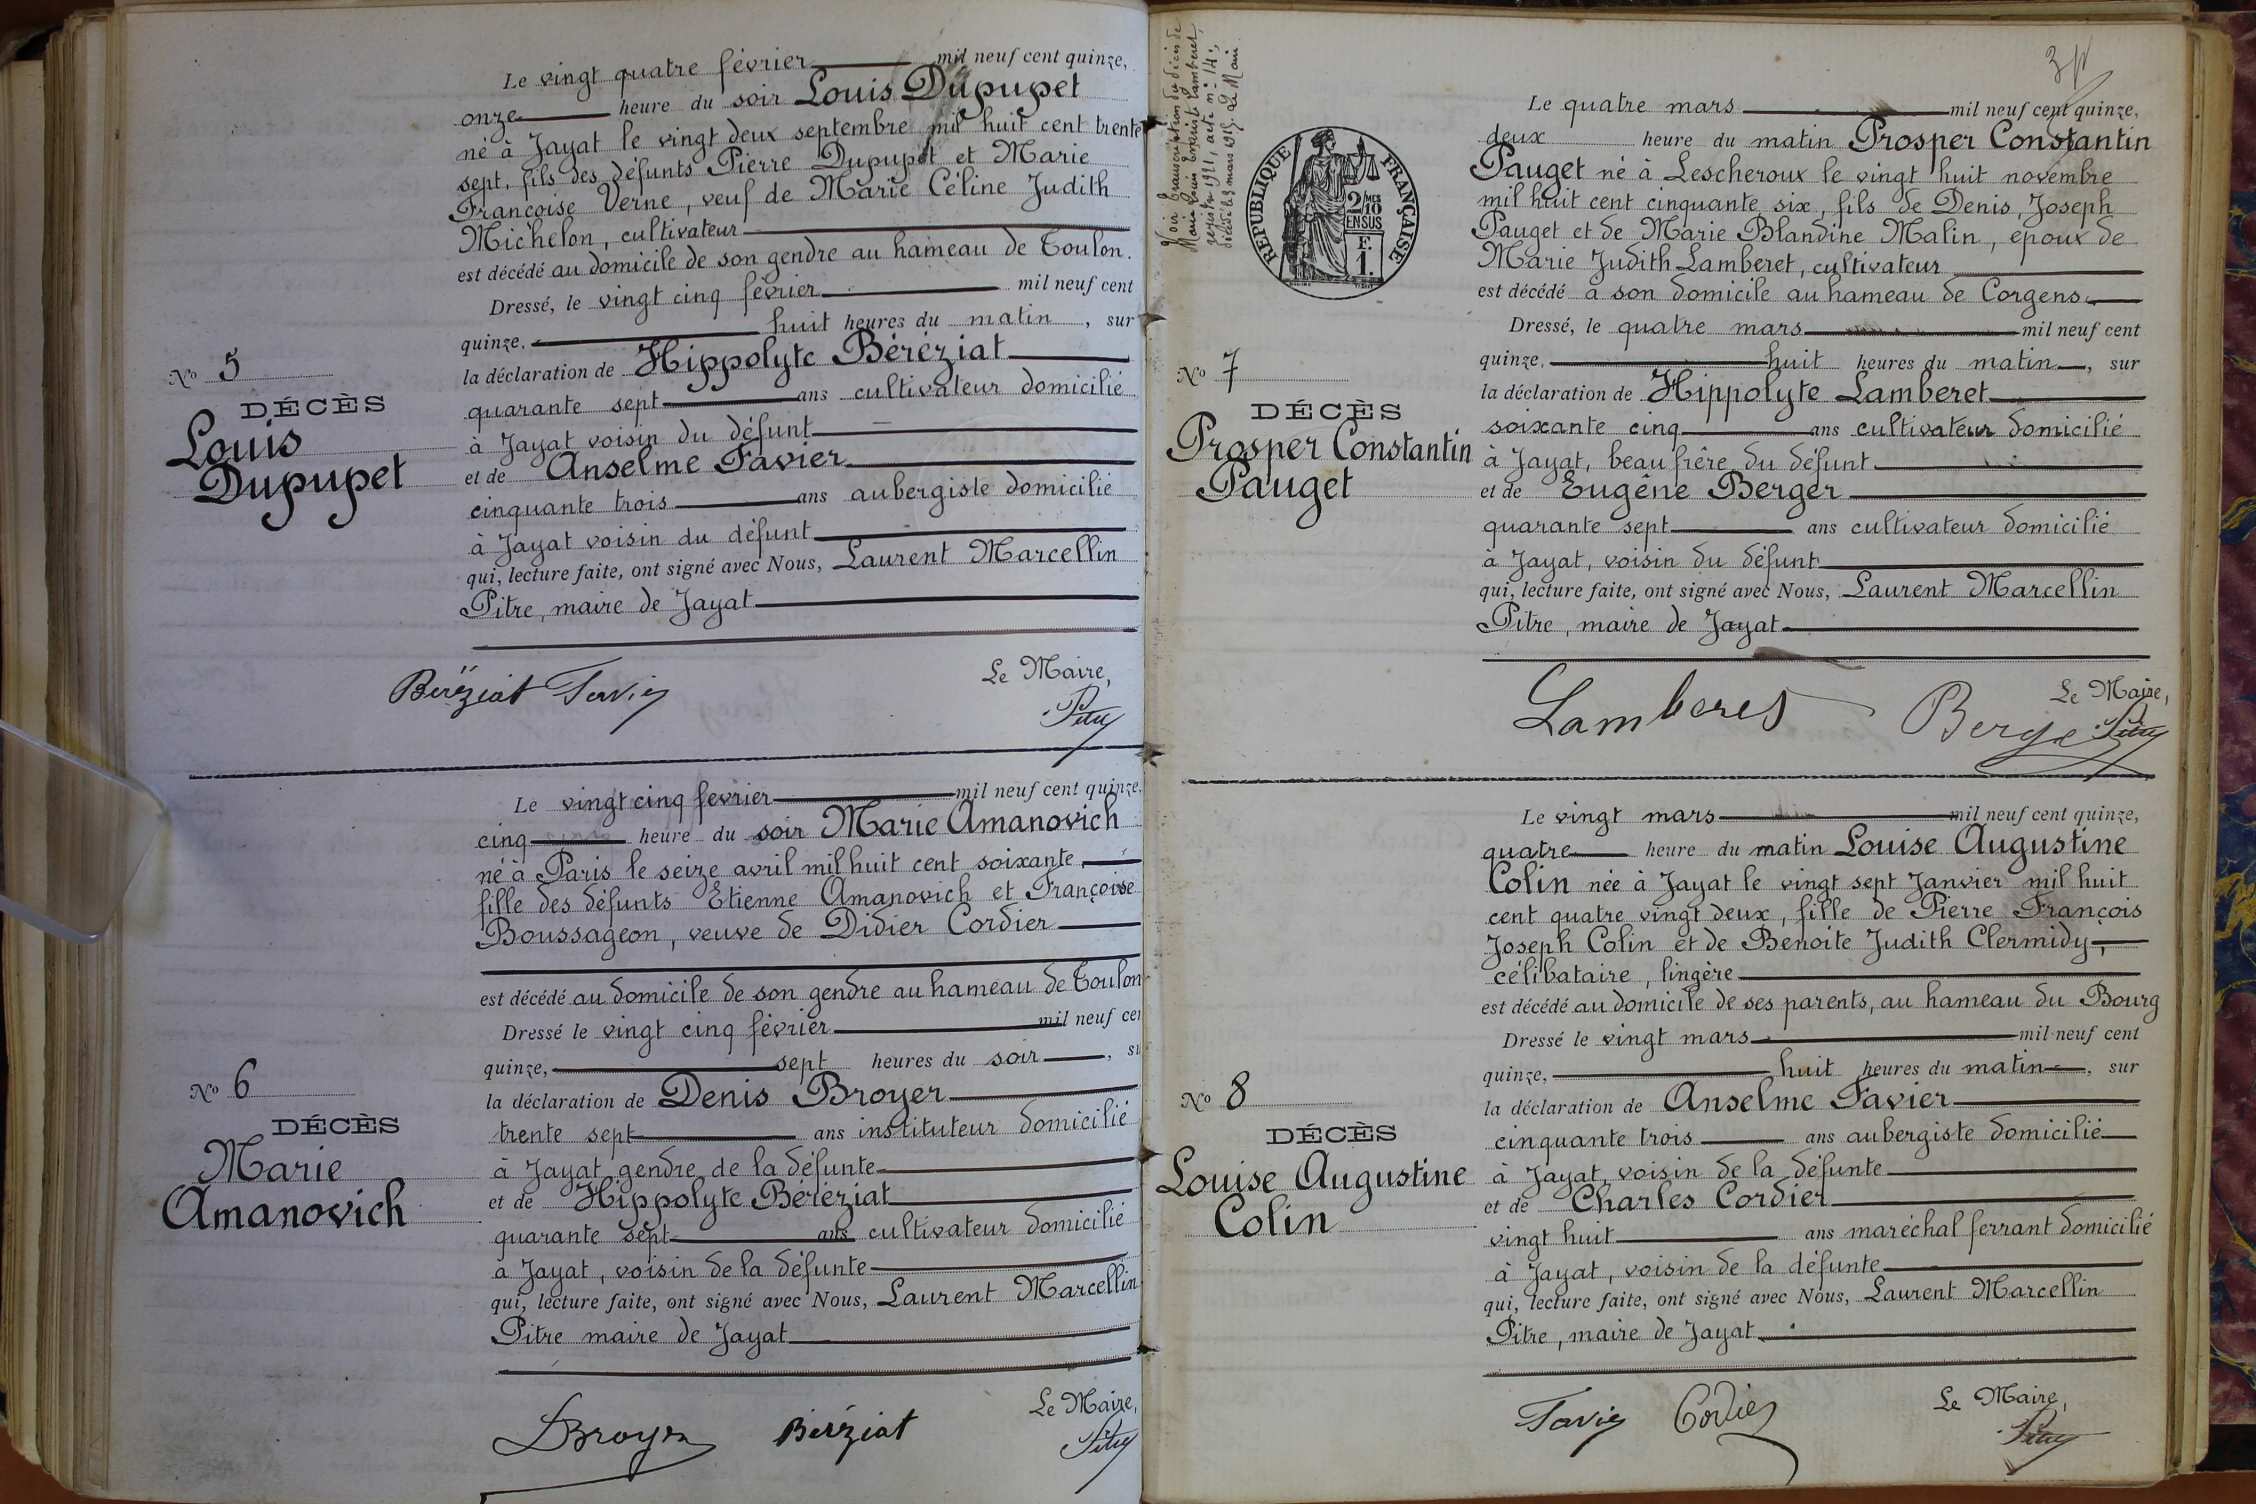 Le vingt quatre février mil neuf cent quinze,
onze heure du soir Louis Dupupet
né à Jayat le vingt deux septembre mil huit cent trente
sept, fils des défunts Pierre Dupupet et Marie
Françoise Verne, veuf de Marie Céline Judith
Michelon, cultivateur
est décédé au domicile de son gendre au hameau de Toulon.
Dressé, le vingt cinq février mil neuf cent
quinze, huit heures du matin, sur
la déclaration de Hippolyte Béréziat
quarante sept ans cultivateur domicilié
à Jayat voisin du défunt
et de Anselme Favier
cinquante trois ans aubergiste domicilié
à Jayat voisin du défunt
qui, lecture faite, ont signé avec Nous, Laurent Marcellin
Pitre, maire de Jayat
No 5
DÉCÈS
Louis
Dupupet
Le Maire,
Béréziat Favier Pitre
Le vingt cinq février mil neuf cent quinze,
cinq heure du soir Marie Amanovich
né à Paris le seize avril mil huit cent soixante,
fille des défunts Etienne Amanovich et Françoise
Boussageon, veuve de Didier Cordier
est décédé au domicile de son gendre au hameau de Toulon
Dressé le vingt cinq février mil neuf cen
quinze, sept heures du soir, su
la déclaration de Denis Broyer
trente sept ans instituteur domicilié
à Jayat gendre de la défunte
et de Hippolyte Béréziat
quarante sept ans cultivateur domicilié
à Jayat, voisin de la défunte
qui, lecture faite, ont signé avec Nous, Laurent Marcellin
Pitre maire de Jayat
No 6
DÉCÈS
Marie
Amanovich
Le Maire,
DBroyer Béréziat Pitre
Voir transcription du décès de
Marie Louis Lamberet,
registre 1921, acte no 14,
décédé le 3 mars 1915. Le Maire
RÉPUBLIQUE FRANÇAISE
2/10
MES
EN SUS
F.
1.
Le quatre mars mil neuf cent quinze,
deux heure du matin Prosper Constantin
Pauget né à Lescheroux le vingt huit novembre
mil huit cent cinquante six, fils de Denis, Joseph
Pauget et de Marie Blandine Malin, époux de
Marie Judith Lamberet, cultivateur
est décédé à son domicile au hameau de Corgens
Dressé, le quatre mars mil neuf cent
quinze, huit heures du matin, sur
la déclaration de Hippolyte Lamberet
soixante cinq ans cultivateur domicilié
à Jayat, beau frère du défunt
et de Eugène Berger
quarante sept ans cultivateur domicilié
à Jayat, voisin du défunt
qui, lecture faite, ont signé avec Nous, Laurent Marcellin
Pitre, maire de Jayat
No 7
DÉCÈS
Prosper Constantin
Pauget
Le Maire,
Lamberet Berger Pitre
Le vingt mars mil neuf cent quinze,
quatre heure du matin Louise Augustine
Colin née à Jayat le vingt sept Janvier mil huit
cent quatre vingt deux, fille de Pierre François
Joseph Colin et de Benoite Judith Clermidy,
célibataire, lingère
est décédé au domicile de ses parents, au hameau du Bourg
Dressé le vingt mars mil neuf cent
quinze, huit heures du matin, sur
la déclaration de Anselme Favier
cinquante trois ans aubergiste domicilié
à Jayat, voisin de la défunte
et de Charles Cordier
vingt huit ans maréchal ferrant domicilié
à Jayat, voisin de la défunte
qui, lecture faite, ont signé avec Nous, Laurent Marcellin
Pitre, maire de Jayat
No 8
DÉCÈS
Louise Augustine
Colin
Le Maire,
Favier Cordier Pitre